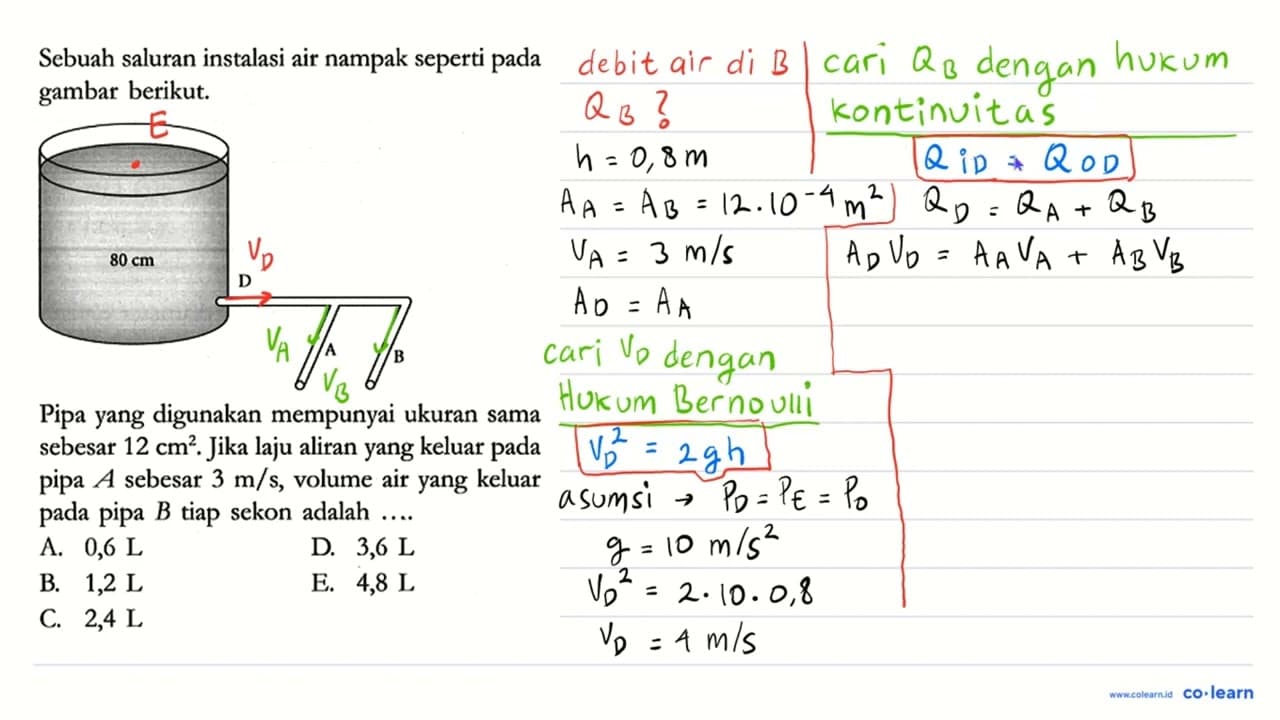 Sebuah saluran instalasi air nampak seperti pada
gambar berikut.
E
80 cm
V_D
D
V_A
A
V_B
B
Pipa yang digunakan mempunyai ukuran sama
sebesar 12 cm². Jika laju aliran yang keluar pada
pipa A sebesar 3 m/s, volume air yang keluar
pada pipa B tiap sekon adalah ....
A. 0,6 L
D. 3,6 L
B. 1,2 L
E. 4,8 L
C. 2,4 L
debit air di B
Q_B ?
h = 0,8 m
A_A = A_B = 12.10⁻⁴ m²
V_A = 3 m/s
A_D = A_A
cari V_D dengan
Hukum Bernoulli
V_D² = 2gh
asumsi → P_D = P_E = P_0
g = 10 m/s²
V_D² = 2.10.0,8
V_D = 4 m/s
cari Q_B dengan hukum
kontinuitas
Q_iD = Q_OD
Q_D = Q_A + Q_B
A_D V_D = A_A V_A + A_B V_B
www.colearn.id co·learn